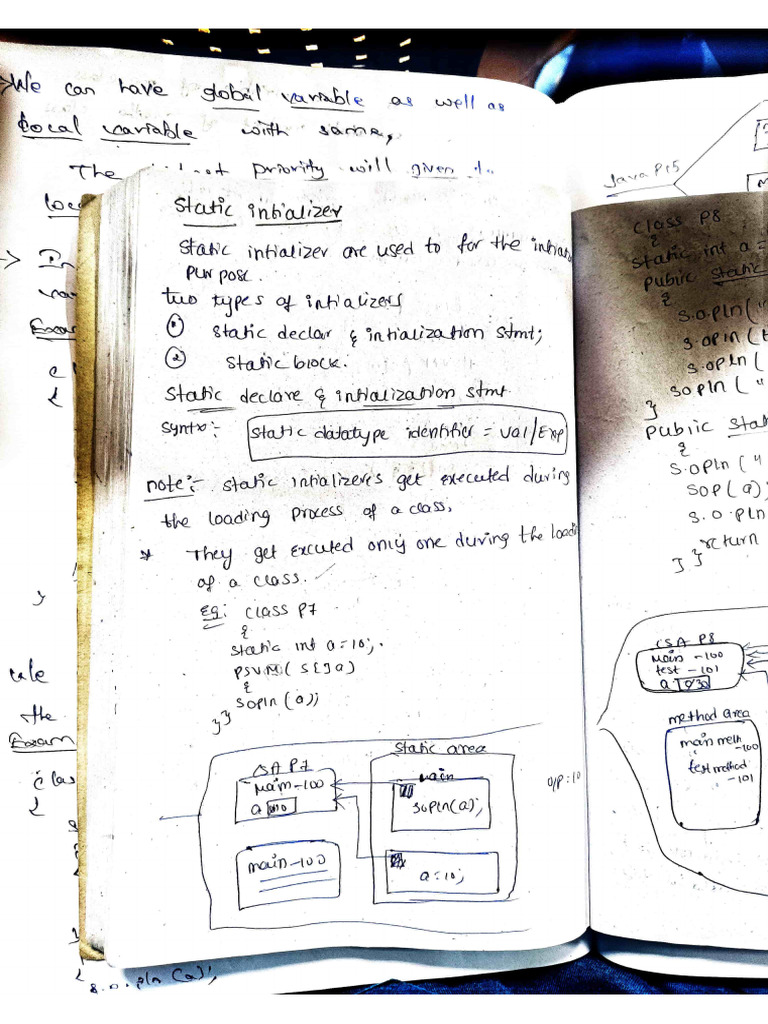 We can have global variable as well as
local variable with same,
The priority will given to
loc
Static intializer
Static intializer are used to for the
purpose.
two types of intializers
① Static declar & intialization stmt;
② Static block.
Static declare & intialization stmt.
Syntx:- Static datatype identifier = val/Exp
note:- Static intializeres get executed during
the loading process of a class,
* They get excuted only one during the loadi
of a class.
Eg: class P7
{
static int a=10;
PSVM( S[]a)
{
sopln(a);
}}
CSA P7
Main-100
a 10
main-100
Static area
main
sopln(a);
a=10;
o/p:10
we
the
Exam
clas
{
s.o.pln (a);
Java Prs
class P8
{
static int a =
pubic static
{
s.o.pln("
s.opln(
s.opln(
sopln( "
}
public stat
{
s.opln("
sop(a);
s.o.pln
return
}}
CSA P8
Main-100
test-101
a
method area
main meth
-100
test method
-101